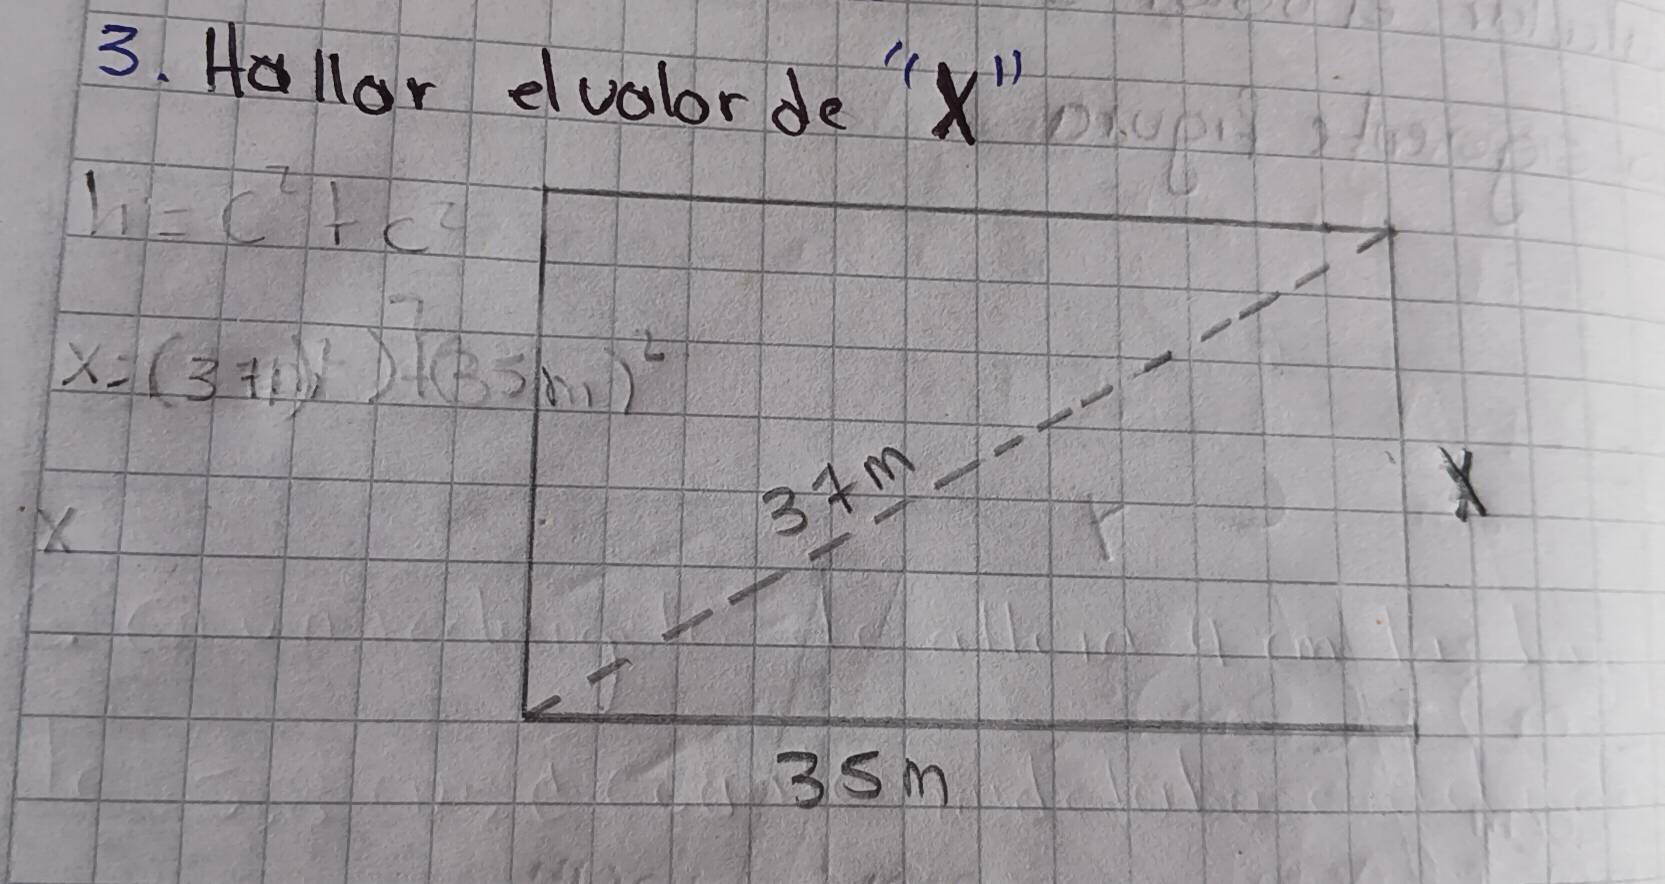 3. Hallar el valor de "X"
h = c² + c²
x = (37m)² + (35m)²
37m
X
x
35m